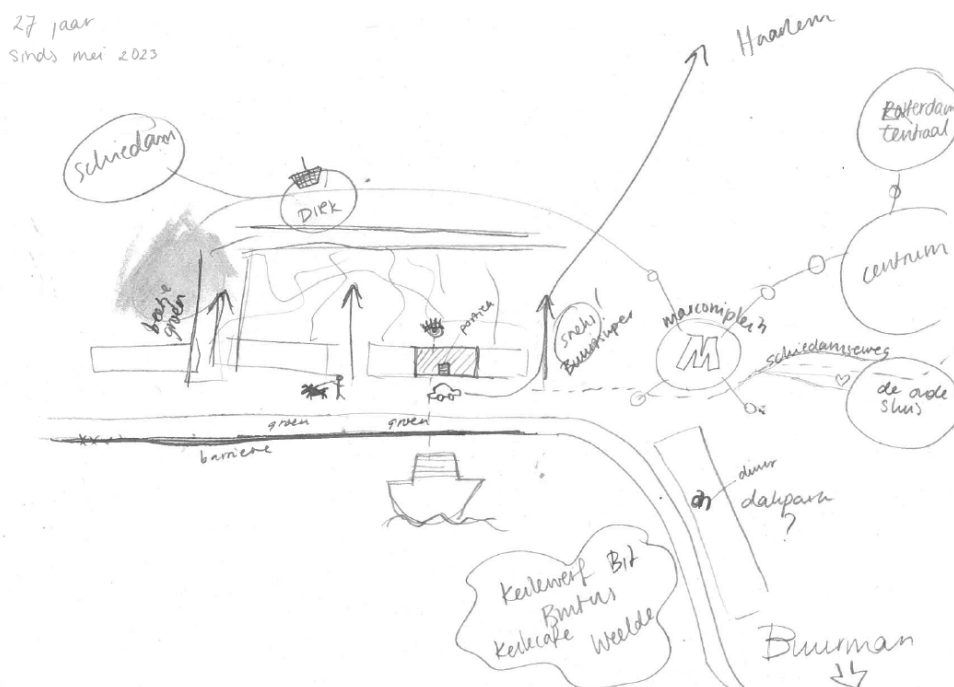 27 jaar
sinds mei 2023
Haarlem
Rotterdam
Centraal
Schiedam
DIRK
centrum
beetje
groen
portiek
snelst!
Buurtsuper
marconiplein
M
schiedamseweg
de oude
sluis
groen
groen
barriere
duur
ah
dakpark
?
Keilewerf
BIT
Keilecafe
Weelde
Buurman